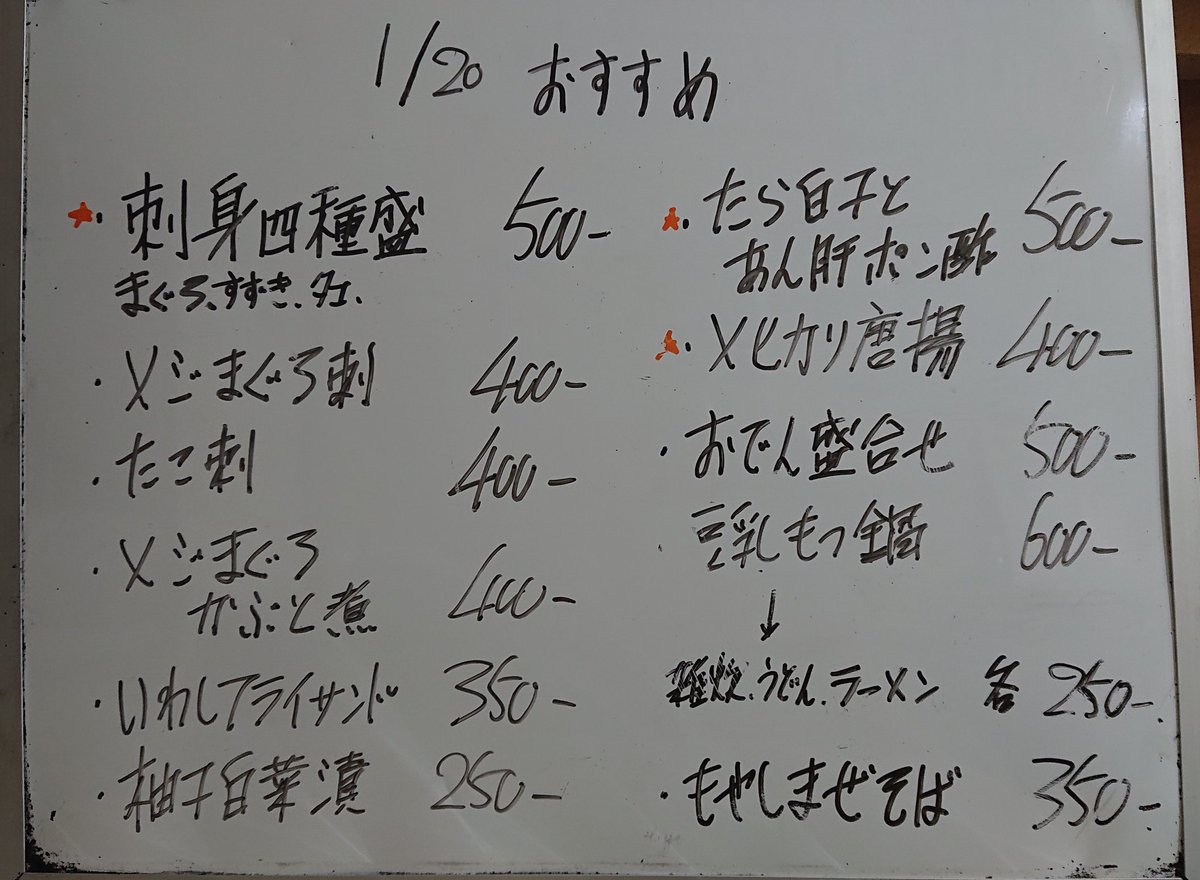 1/20 おすすめ
・刺身四種盛 500-
まぐろ、すずき、タコ.
・メジまぐろ刺 400-
・たこ刺 400-
・メジまぐろ
かぶと煮 400-
・いわしフライサンド 350-
・柚子白菜漬 250-
・たら白子と
あん肝ポン酢 500-
・メヒカリ唐揚 400-
・おでん盛合せ 500-
・豆乳もつ鍋 600-
↓
雑炊、うどん、ラーメン 各 250-
・もやしまぜそば 350-